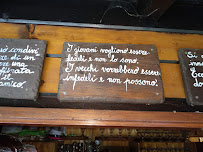 ciò condivi
una
icata
il
amico.
I giovani vogliono essere
fedeli e non lo sono.
I vecchi vorrebbero essere
infedeli e non possono.